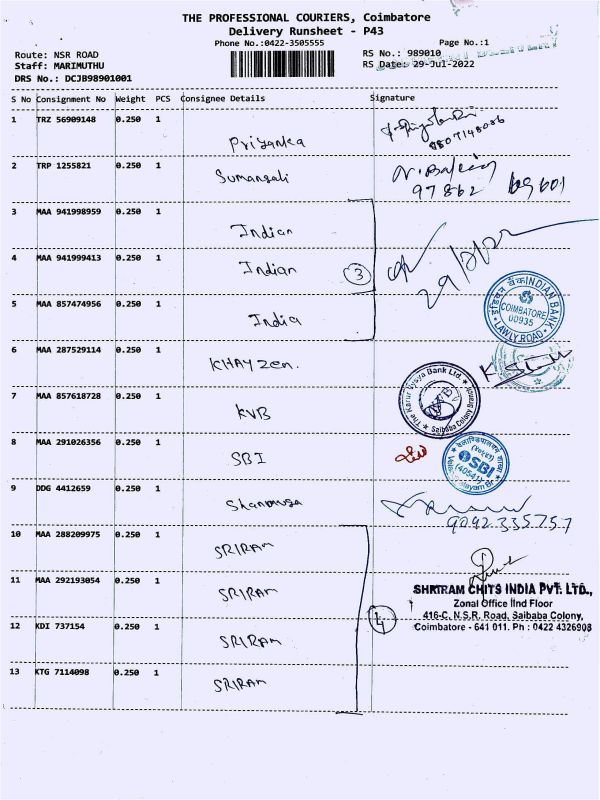 THE PROFESSIONAL COURIERS, Coimbatore
Delivery Runsheet - P43
Phone No.:0422-3505555
Page No.:1
Route: NSR ROAD
RS No.: 989010
Staff: MARIMUTHU
RS Date: 29-Jul-2022
DRS No.: DCJB98901001
S No Consignment No Weight PCS Consignee Details Signature
1 TRZ 56909148 0.250 1 Priyanka
8807148086
2 TRP 1255821 0.250 1 Sumangali
97862 69601
3 MAA 941998959 0.250 1 Indian
4 MAA 941999413 0.250 1 Indian 3
5 MAA 857474956 0.250 1 India
INDIAN BANK
COIMBATORE
00935
LAWLY ROAD
6 MAA 287529114 0.250 1 KHAYZen.
7 MAA 857618728 0.250 1 KVB
The Karur Vysya Bank Ltd.
Saibaba Colony
8 MAA 291026356 0.250 1 SBI
SBI
(40541)
9 DDG 4412659 0.250 1 Shanmuga
9092335757
10 MAA 288209975 0.250 1 SRIRAM
11 MAA 292193054 0.250 1 SRIRAM
SHRIRAM CHITS INDIA PVT. LTD.,
Zonal Office IInd Floor
416-C, N.S.R. Road, Saibaba Colony,
Coimbatore - 641 011. Ph : 0422 4326908
12 KDI 737154 0.250 1 SRIRAM 4
13 KTG 7114098 0.250 1 SRIRAM